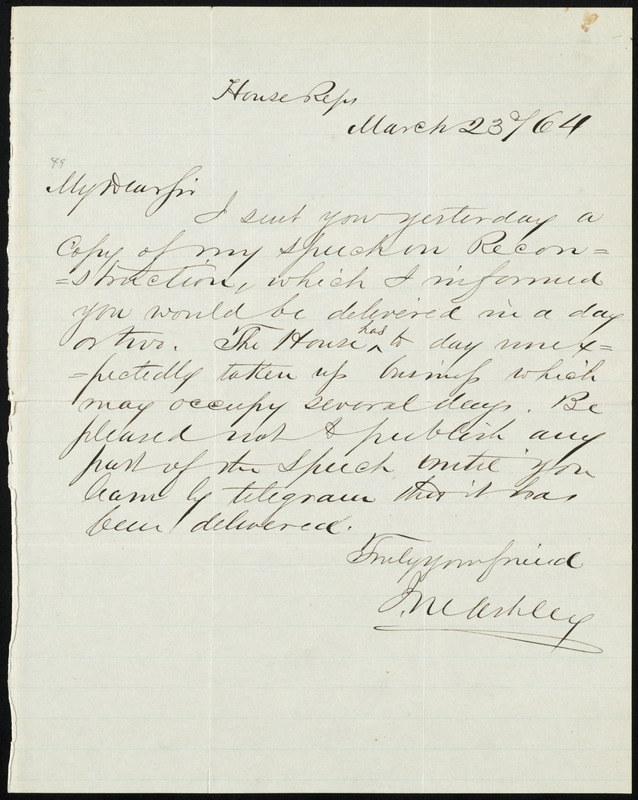 House Reps
March 23d/64
49
My Dear Sir
I sent you yesterday a
Copy of my speech on Recon=
=struction, which I informed
you would be delivered in a day
or two. The House has to day unex=
=pectedly taken up business which
may occupy several days. Be
pleased not to publish any
part of the Speech until you
learn by telegram that it has
been delivered.
Truly your friend
J M Ashley